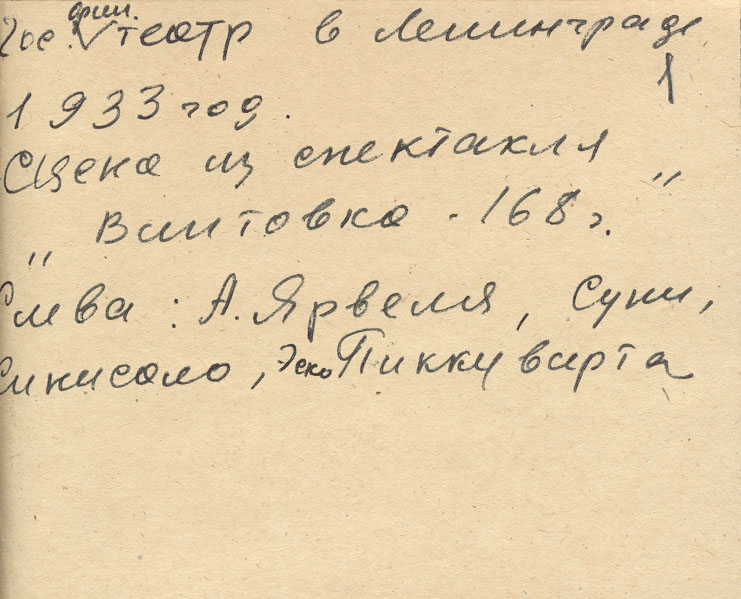 Гос. фин. театр в Ленинграде
1
1933 год.
Сцена из спектакля
„Винтовка - 168 г."
Слева: А. Ярвеля, Суни,
Синисало, Эско Пиккуварта